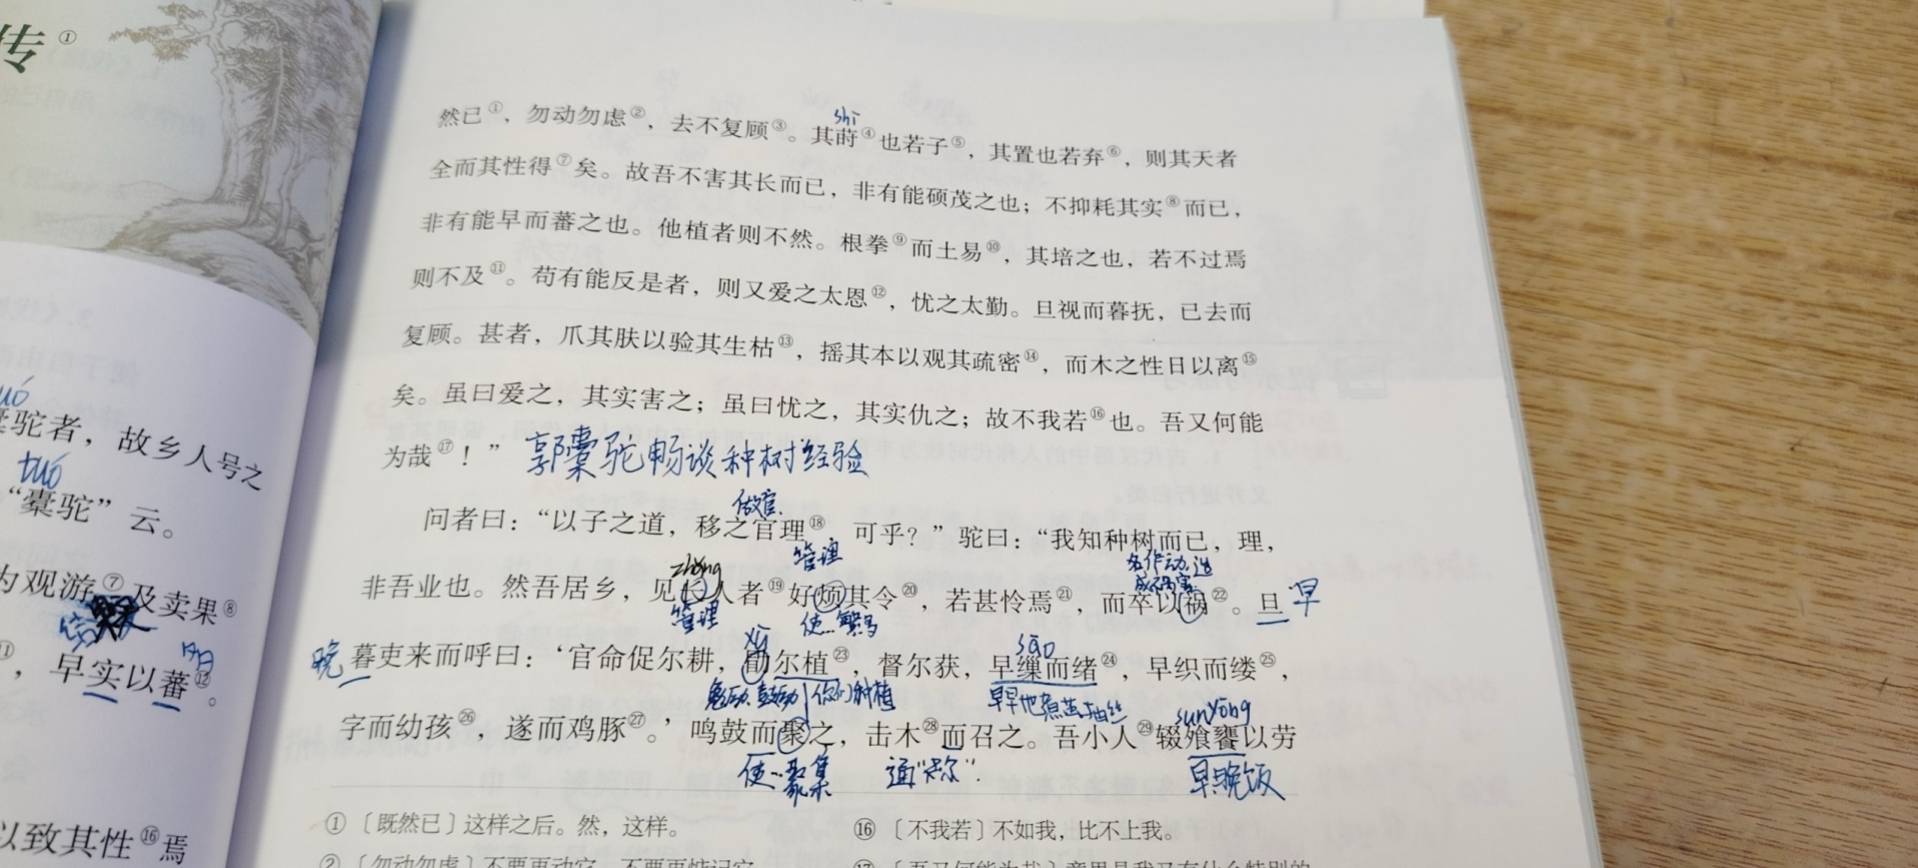 传①
橐驼者，故乡人号之
tuó
“橐驼”云。
为观游⑦及卖果⑧
，早实以蕃⑫。
以致其性⑯焉
shì
然已①，勿动勿虑②，去不复顾③。其莳④也若子⑤，其置也若弃⑥，则其天者
全而其性得⑦矣。故吾不害其长而已，非有能硕茂之也；不抑耗其实⑧而已，
非有能早而蕃之也。他植者则不然。根拳⑨而土易⑩，其培之也，若不过焉
则不及⑪。苟有能反是者，则又爱之太恩⑫，忧之太勤。旦视而暮抚，已去而
复顾。甚者，爪其肤以验其生枯⑬，摇其本以观其疏密⑭，而木之性日以离⑮
矣。虽曰爱之，其实害之；虽曰忧之，其实仇之；故不我若⑯也。吾又何能
为哉⑰！” 郭橐驼畅谈种树经验
做官
问者曰：“以子之道，移之官理⑱，可乎？”驼曰：“我知种树而已，理，
zhǎng 管理 名作动，造成祸害
非吾业也。然吾居乡，见长人者⑲好烦其令⑳，若甚怜焉㉑，而卒以祸㉒。旦 早
管理 使…繁多
xù sāo
晚 暮吏来而呼曰：‘官命促尔耕，勖尔植㉓，督尔获，早缫而绪㉔，早织而缕㉕，
勉励、鼓励 你们种植 早早地煮茧抽丝
sūn yōng
字而幼孩㉖，遂而鸡豚㉗。’鸣鼓而聚之，击木㉘而召之。吾小人㉙辍飧饔以劳
使…聚集 通“尔”. 早晚饭
①〔既然已〕这样之后。然，这样。
⑯〔不我若〕不如我，比不上我。
②〔勿动勿虑〕不要再动它，不要再惦记它
⑰〔吾又何能为哉〕意思是我又有什么特别的